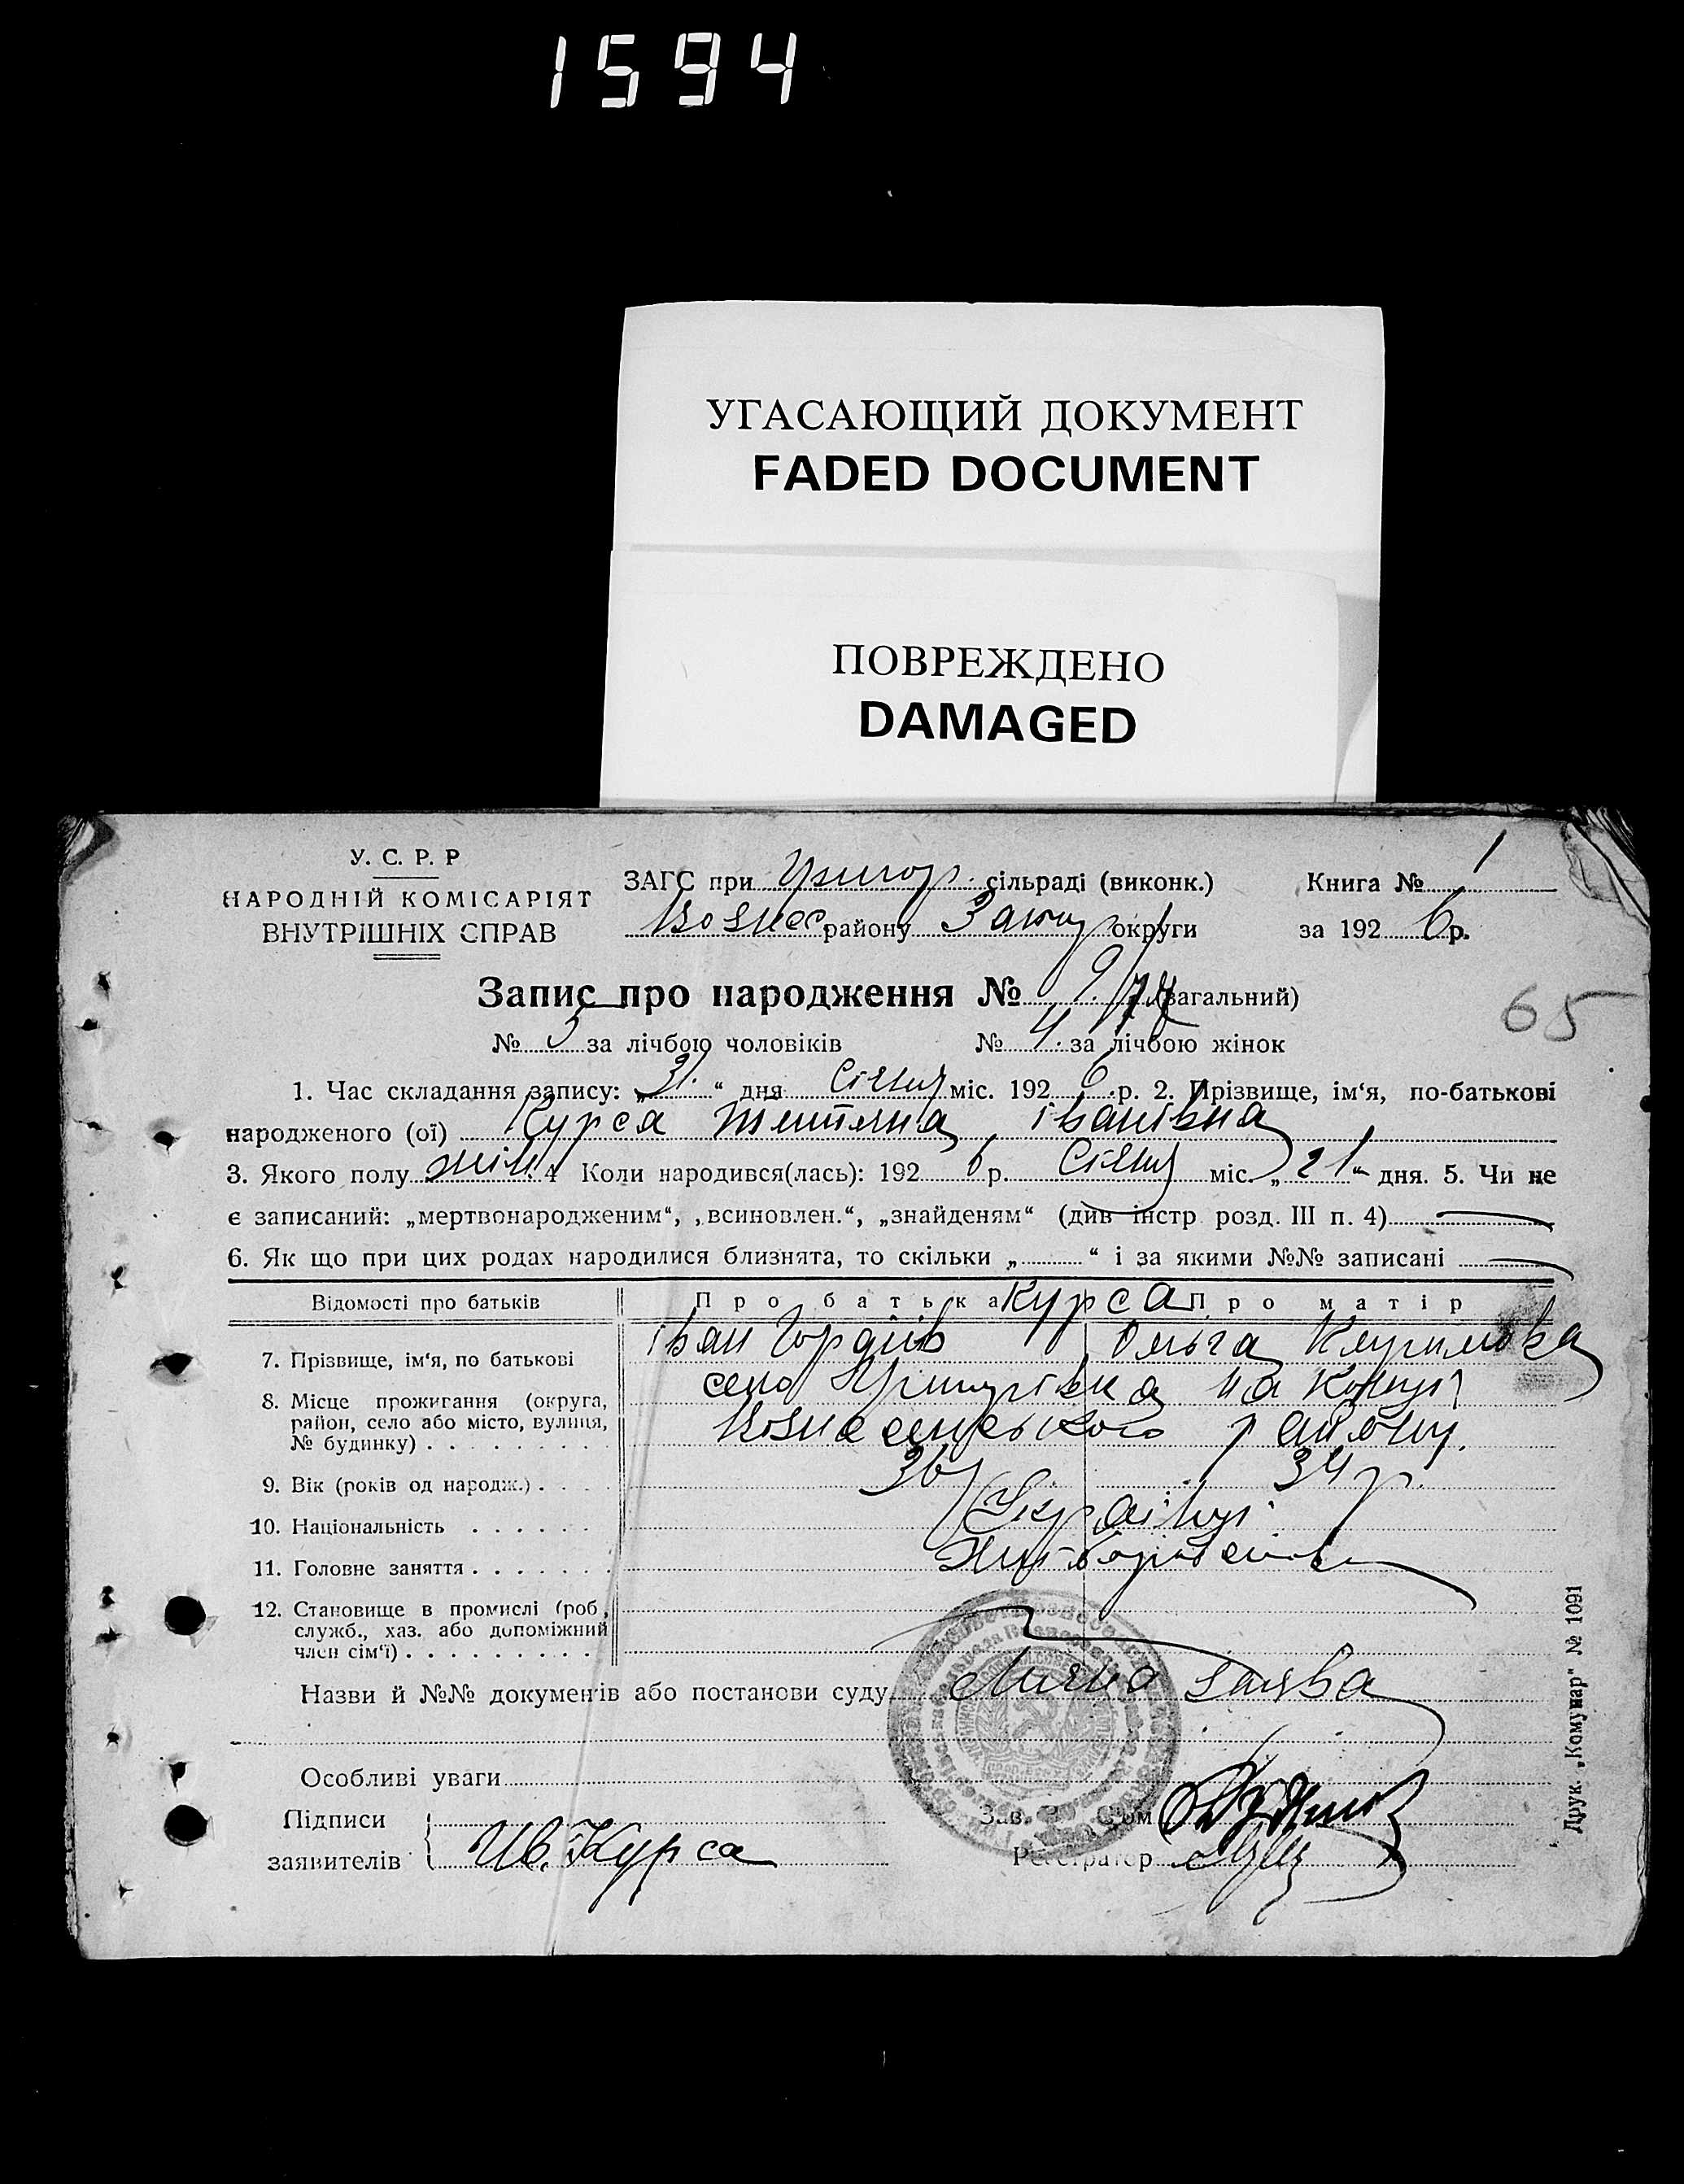 1594
УГАСАЮЩИЙ ДОКУМЕНТ
FADED DOCUMENT
ПОВРЕЖДЕНО
DAMAGED
У. С. Р. Р
НАРОДНІЙ КОМІСАРІЯТ
ВНУТРІШНІХ СПРАВ
ЗАГС при Григор. сільраді (виконк.) Книга № 1
Вознес району Запор округи за 1926 р.
Запис про народження № 9. (загальний)
65
№ 5 за лічбою чоловіків № 4. за лічбою жінок
1. Час складання запису: „31.“ дня Січня міс. 1926 р. 2. Прізвище, ім‘я, по-батькові
народженого (ої) Курса Тетяна Іванівна
3. Якого полу жін. 4 Коли народився(лась): 1926 р. Січня міс. „21“ дня. 5. Чи не
є записаний: „мертвонародженим“, „всиновлен.“, „знайденям“ (див інстр розд. III п. 4)
6. Як що при цих родах народилися близнята, то скільки „ “ і за якими №№ записані
Відомості про батьків Про батька Курса Про матір
7. Прізвище, ім‘я, по батькові Іван Гордіїв Ольга
8. Місце прожигання (округа,
район, село або місто, вулиця,
№ будинку)
село Григорівка
Вознесенського району.
9. Вік (років од народж.) 36 34 р.
10. Національність Українці
11. Головне заняття Хліборобство
12. Становище в промислі (роб,
служб., хаз. або допоміжний
член сім‘ї)
Назви й №№ документів або постанови суду заява
Особливі уваги
Підписи
заявителів Ив. Курса
Зав.
Регістратор
Друк. „Комунар“ № 1091